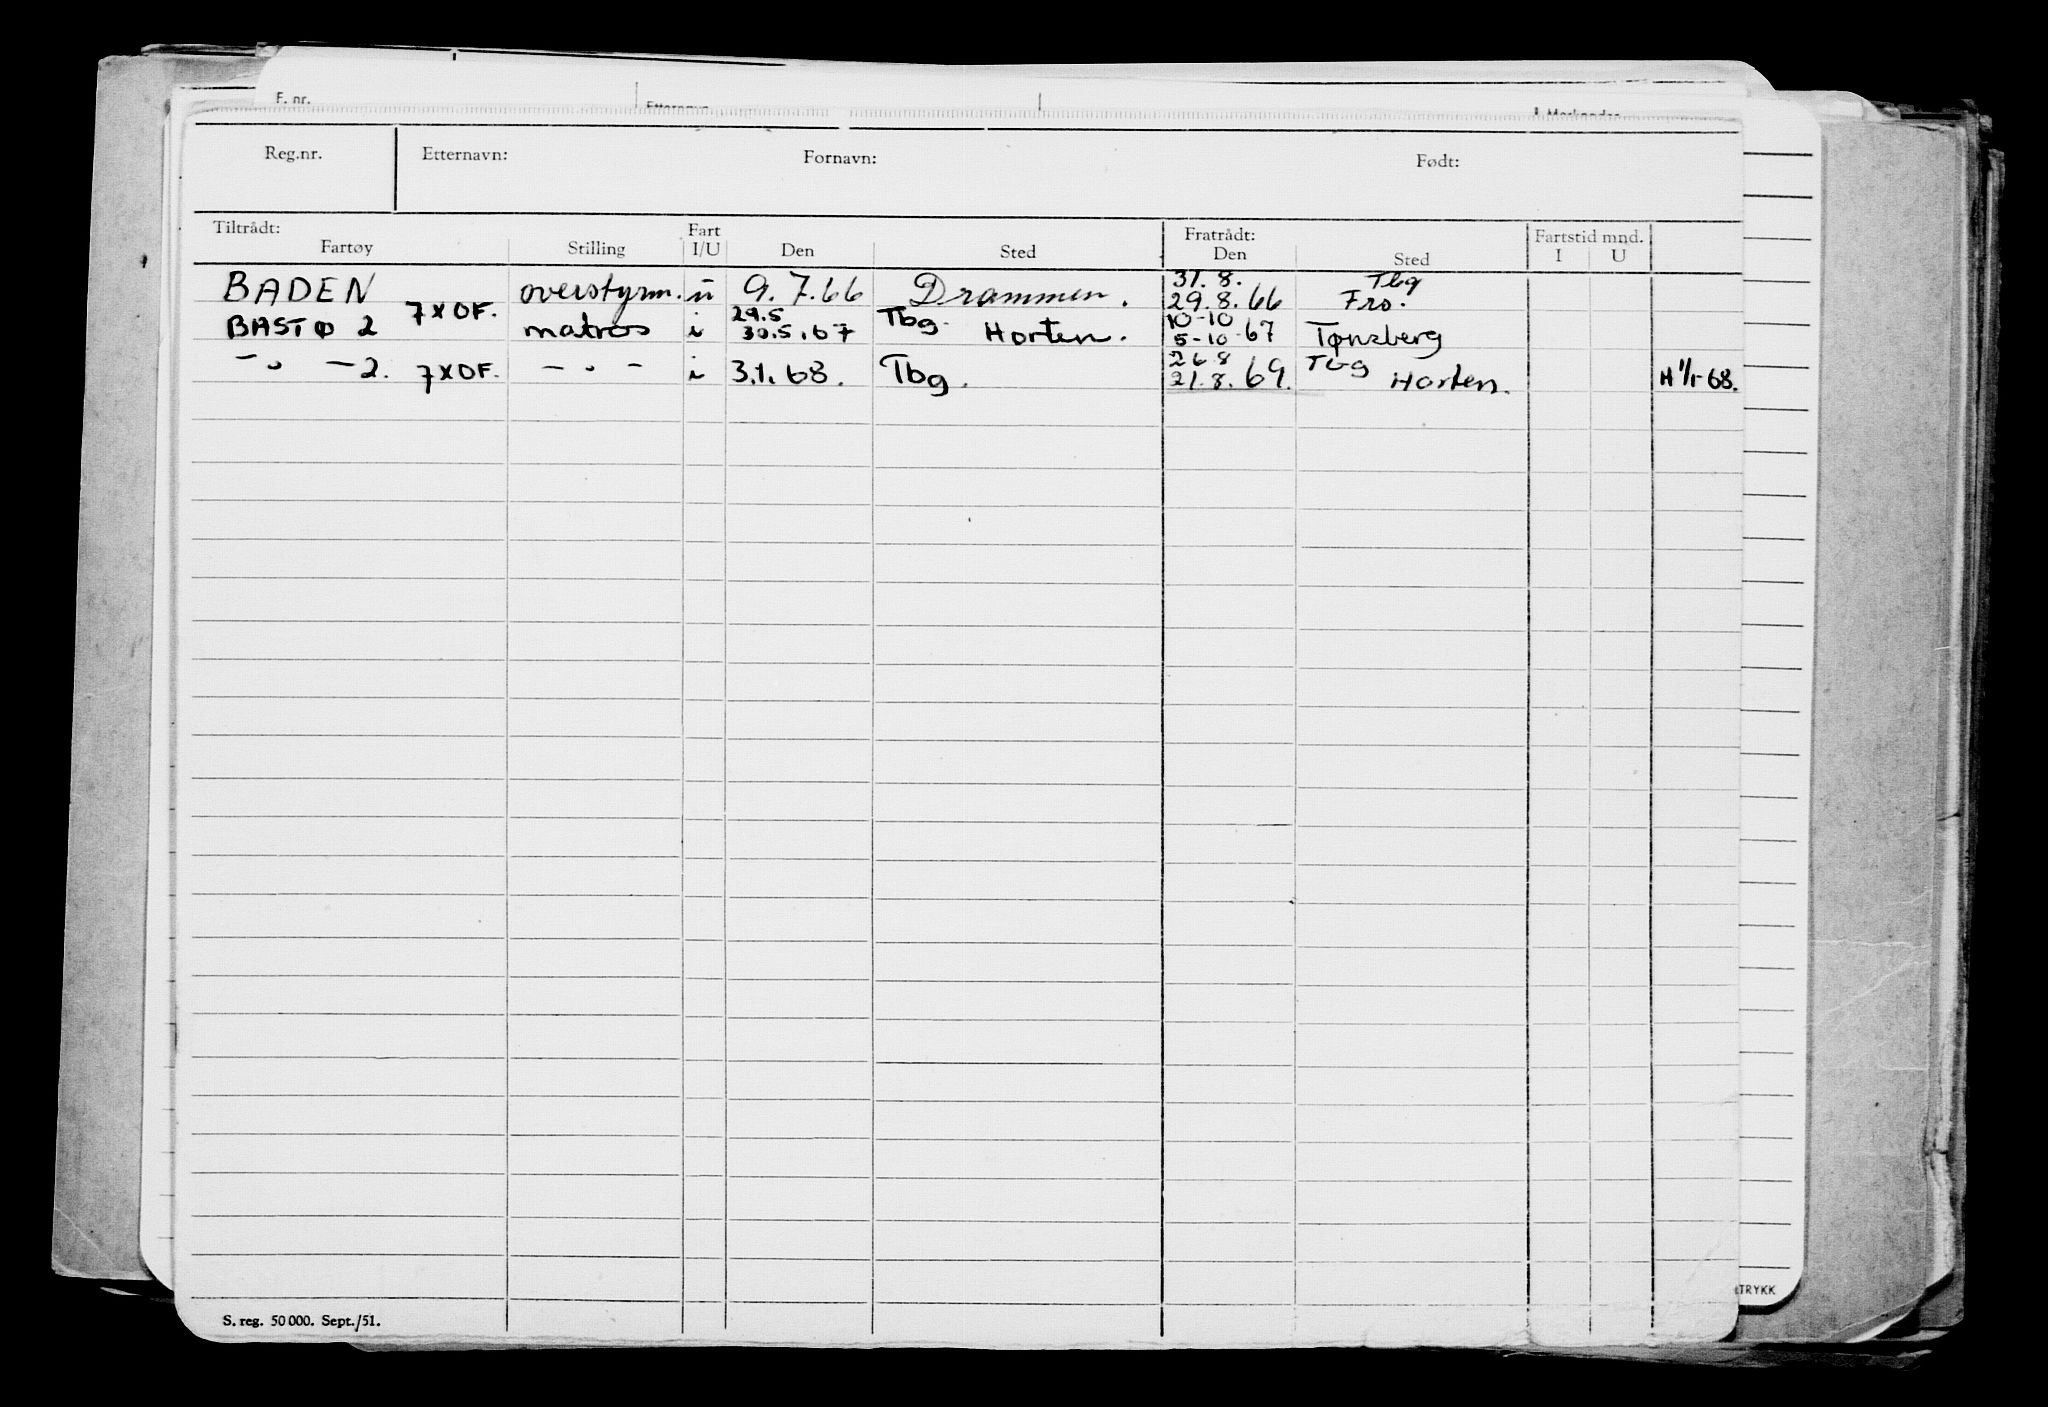 F. nr.
Reg.nr. Etternavn: Fornavn: Født:
Tiltrådt: Fart Fratrådt: Fartstid mnd.
Fartøy Stilling I/U Den Sted Den Sted I U
31. 8. Tbg
BADEN overstyrm. u 9. 7. 66 Drammen. 29. 8. 66 Fro.
7XOF. 29.5 Tbg. 10-10
BASTØ 2 matros i 30.5.67 Horten. 5-10 67 Tønsberg
26 8 Tbg
— " — 2. 7XOF. — " — i 3.1.68. Tbg. 21. 8. 69. Horten. H 1/1-68.
TRYKK
S. reg. 50 000. Sept./51.